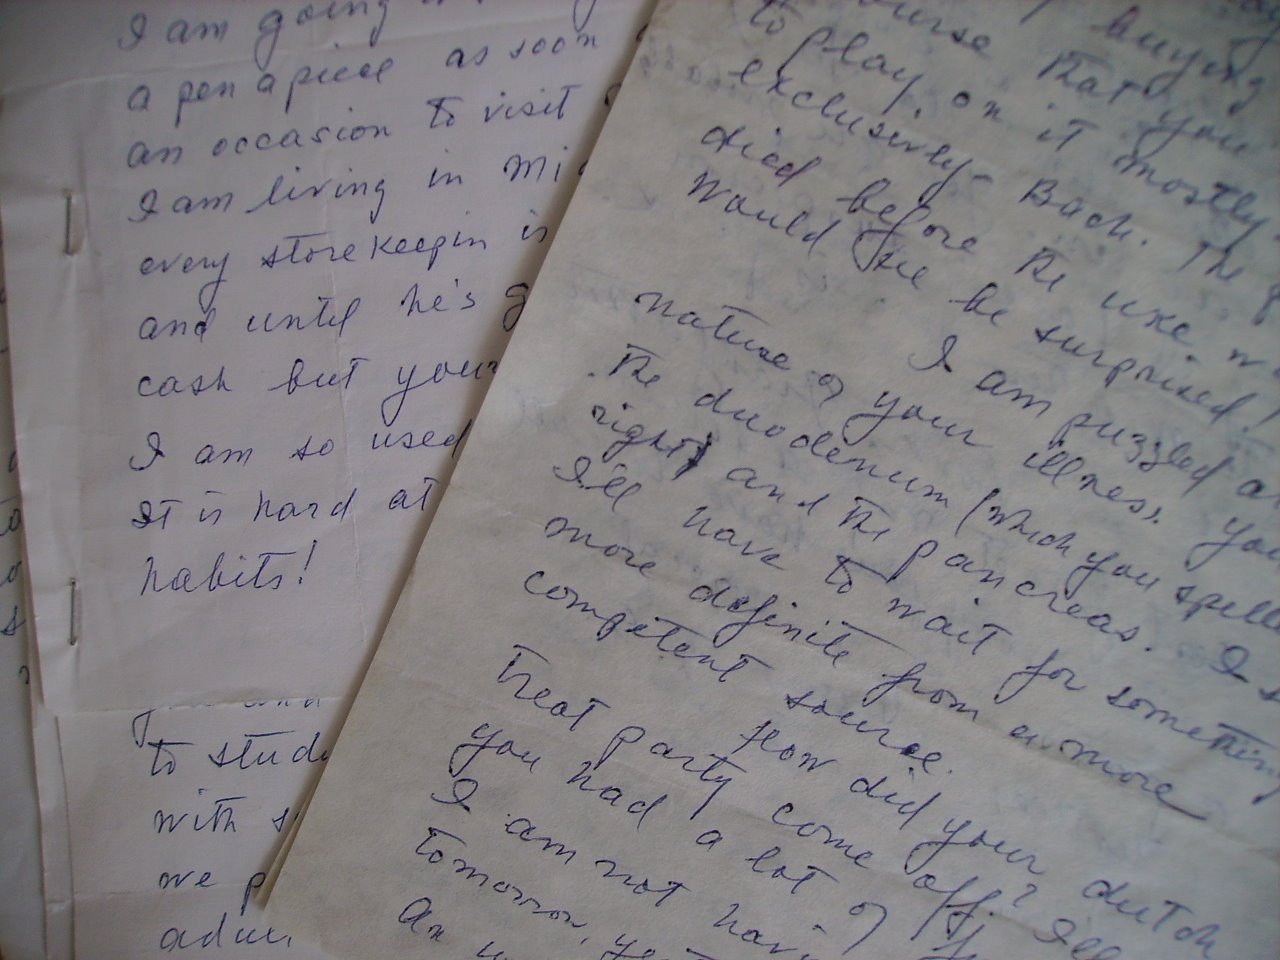 I am going
a pen apiece as soon
an occasion to visit
I am living in Mi
every storekeepin is
and until he's g
cash but your
I am so used
It is hard at
habits!
to stude
with s
we p
buying
course that you
to play on it mostly-
exclusively- Bach. The
died before the uke. w
Would he be surprised!
I am puzzled a
nature of your illness. you
the duodenum (which you spelle
right) and the pancreas. I s
I'll have to wait for something
more definite from a more
competent source.
How did your dutch
treat party come off? I'll
you had a lot of f
I am not havi
tomorrow, ye
an